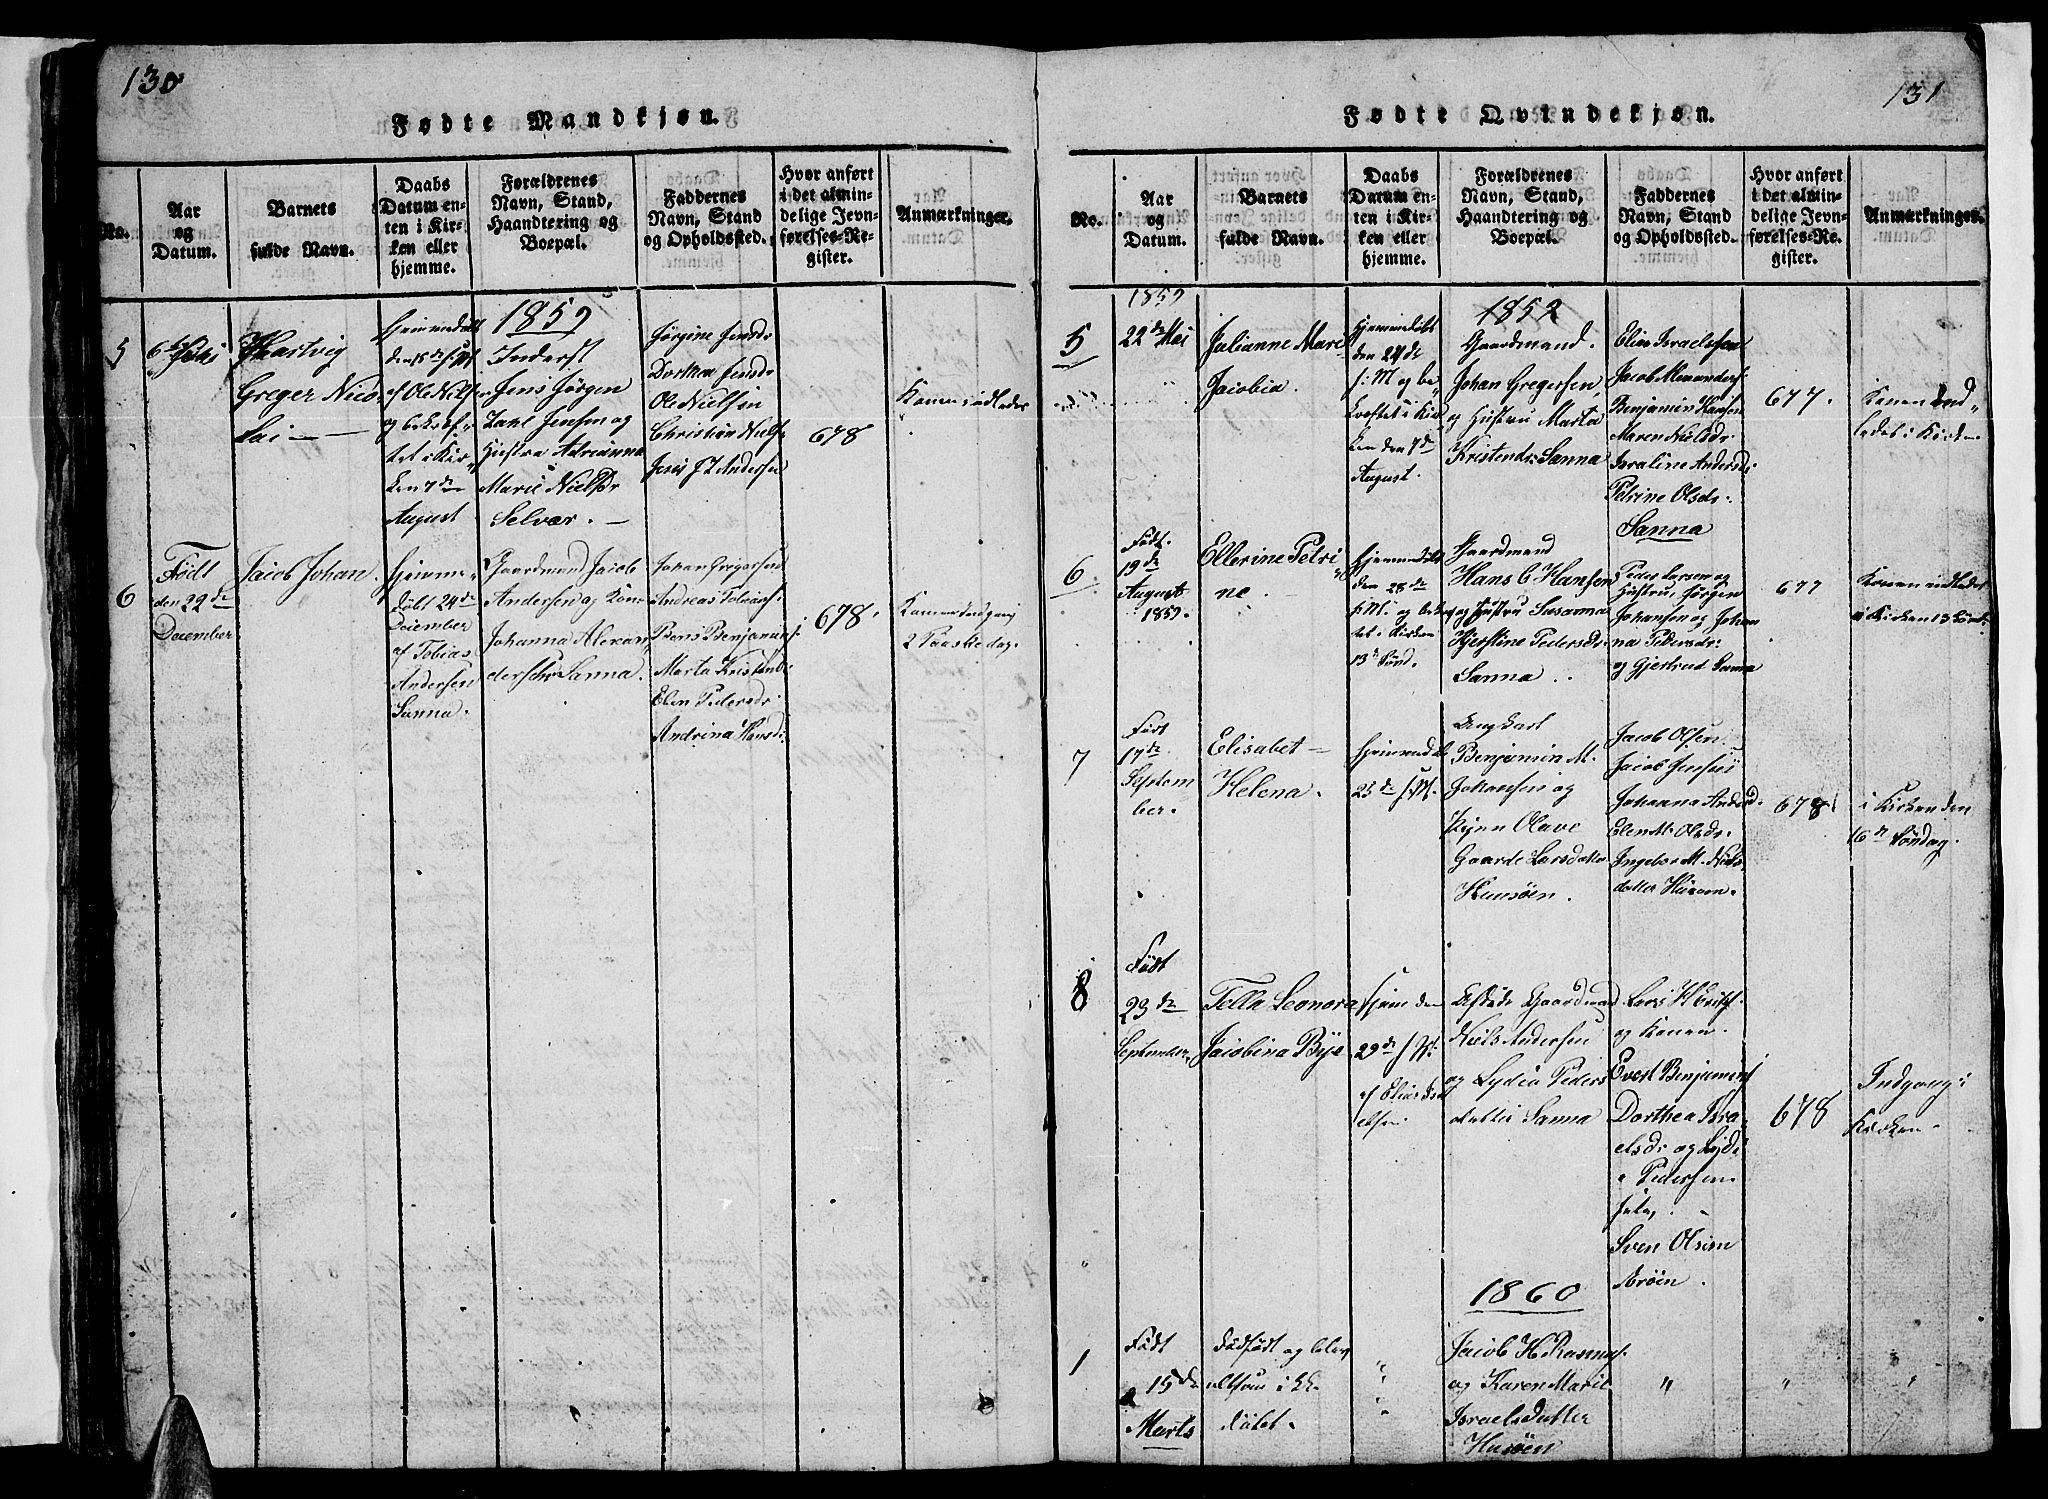 130
Fødte Mandkjøn.
No.
Aar
og
Datum.
Barnets
fulde Navn.
Daabs
Datum en-
ten i Kir-
ken eller
hjemme.
Forældrenes
Navn, Stand,
Haandtering og
Boepæl.
Faddernes
Navn, Stand
og Opholdssted.
Hvor anført
i det almin-
delige Jevn-
førelses-Re-
gister.
Anmærkninger.
1859
5
Hartvig
Greger Nico
lai
Hjemmedøbt
den 15de
af Ole Nielsen
og bekræf-
tet i Kir-
ken 7de
August
Inderst
Jens Jørgen
Zahl Jensen og
Hustru Adrianna
Marie Nielsdr
Selvær.
Jørgine Jensdr
Dorthea Jensdr
Ole Nielsen
Christian Niels
Jens J Z Andersen
678
Konen indledet
6
Født
den 22de
December
Jacob Johan
Hjemme-
døbt 24de
December
af Tobias
Andersen
Sanna.
Gaardmand Jacob
Andersen og Kone
Johanna Alexan
dersdr Sanna.
Johan Gregersen
Andreas Tobias
Benjamins
Marta Kristensd
Elen Pedersdr
Andrina Hansd:
678.
Konen Indgang
2 Paaskedag.
131
Fødte Qvindekjøn.
No.
Aar
og
Datum.
Barnets
fulde Navn.
Daabs
Datum en-
ten i Kir-
ken eller
hjemme.
Forældrenes
Navn, Stand,
Haandtering og
Boepæl.
Faddernes
Navn, Stand
og Opholdssted.
Hvor anført
i det almin-
delige Jevn-
førelses-Re-
gister.
Anmærkninger.
1859
1859
5
22de Mai
Julianne Mari
Jacobia.
Hjemmedøbt
den 24de
s: M og be
kræftet i Kir
ken den 7de
August.
Gaardmand.
Johan Gregersen,
og Hustru Marta
Kristensdr Sanna
Elias Israelssen
Jacob Alexanders:
Benjamin Hansen
Maren Nielsdr
Israline Andersd:
Petrine Olsdr:
Sanna
677.
Konen Ind-
ledet i Kirken
6.
Født.
19de
August
1859.
Ellerine Petri
ne.
Hjemmedøbt
den 28de
s: M: og bekræf
tet i Kirken
13de Sønd.
Gaardmand
Hans C Hansen
og Hustru Susanna
Kjerstine Pedersdr
Sanna
Peder Larsen og
Hustru, Jørgen
Johansen og Johan
na Pedersdr:
og Gjertrud Sanna
677
Konen indledet
i Kirken 13 Sønd:
7
Født
17de
Septem
ber.
Elisabet
Helena.
Hjemmedøbt
25de s: M.
Ungkarl
Benjamin M.
Johansen og
Olave
Gaarde Larsdatter
Husøen.
Jacob Olsen
Jacob Jensen
Johanna Andersd.
Elen M. Olsdr.
Ingebor M. Niels
datter Husøen.
678
i Kirken den
16de Søndag.
8
Født
23de
September
Tella Leonora
Jacobina Bye
Hjem den
29de s: M:
af Elias Isra
elsen
Afdøde Gaardmand
Niels Andersen
og Lydia Peders
datter Sanna
Lars H
og Konen
Evert Benjamins
Dorthea Isra-
elsdr og Lydi
a Pedersen
Sven Olsen
Ærøen.
678
Indgang i
Kirken.
1860
1
Født
15de
Marts
Dødfødt og blev
altsaa ikke
døbt.
"
Jacob H Rasmus.
og Karen Marie
Israelsdatter
Husøen
"
"
"